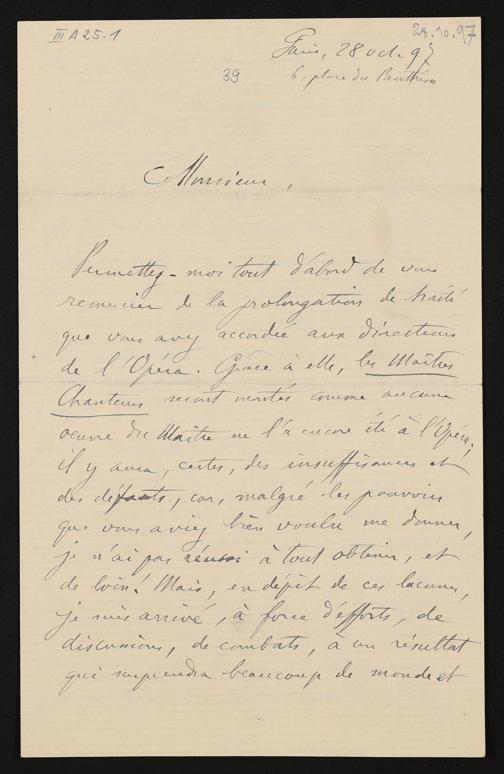 III A 25-1
28.10.97
Paris, 28 oct. 97
39
6, place du Panthéon
Monsieur,
Permettez-moi tout d'abord de vous
remercier de la prolongation de traité
que vous avez accordée aux directeurs
de l'Opéra. Grâce à elle, les Maîtres
Chanteurs seront montés comme aucune
œuvre du Maître ne l'a encore été à l'Opéra;
il y aura, certes, des insuffisances et
des défauts, car, malgré les pouvoirs
que vous aviez bien voulu me donner,
je n'ai pas réussi à tout obtenir, et
de loin! Mais, en dépit de ces lacunes,
je suis arrivé, à force d'efforts, de
discussions, de combats, à un résultat
qui surprendra beaucoup de monde et